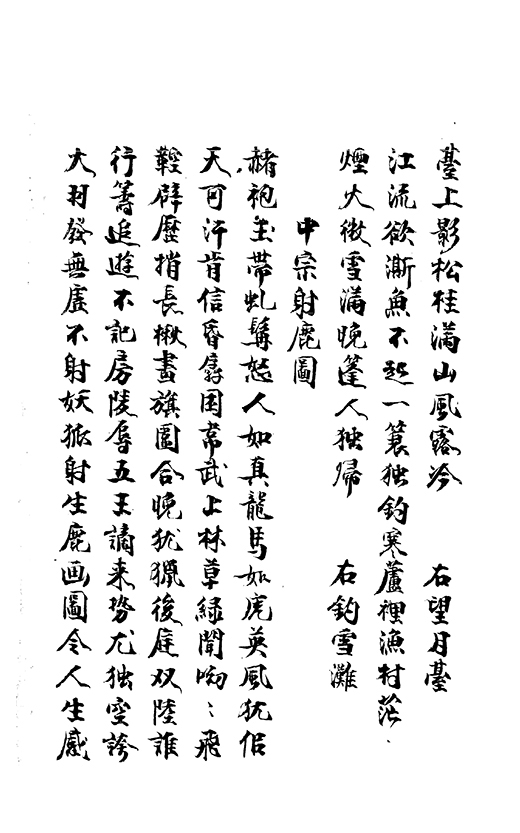 臺上影松桂滿山風露冷　右望月臺
江流欲澌魚不起一蓑独釣寒蘆裡漁村茫〻
煙火微雪滿晚篷人独帰　右釣雪灘
中宗射鹿圖
赭袍玉帶虬髯怒人如真龍馬如虎英風犹侣
天可汗肯信昏孱困韋武上林草緑聞呦〻飛
鞚霹歷捎長楸畫旗圍合晚犹獵後庭双陸誰
行籌追遊不記房陵辱五王謫来勢尤独空誇
大羽發無虚不射妖狐射生鹿画圖令人生感